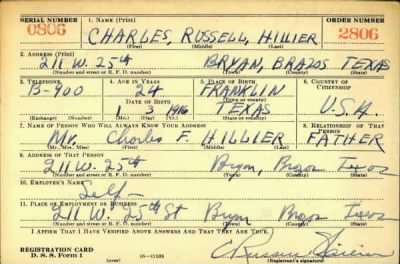 SERIAL NUMBER 1. Name (Print) ORDER NUMBER
0806 CHARLES, RUSSELL, HILLIER 2806
(First) (Middle) (Last)
2. Address (Print)
211 W. 25th BRYAN, BRAZOS TEXAS
(Number and street or R. F. D. number) (Town) (County) (State)
3. Telephone 4. Age in Years 5. Place of Birth 6. Country of Citizenship
B-400 24 FRANKLIN
Date of Birth
1 3 1916 TEXAS U.S.A.
(Exchange) (Number) (Mo.) (Day) (Yr.) (State or country)
7. Name of Person Who Will Always Know Your Address 8. Relationship of That Person
Mr Charles F. HILLIER FATHER
(Mr., Mrs., Miss) (First) (Middle) (Last)
9. Address of That Person
211 W. 25th Bryan, Brazos Texas
(Number and street or R. F. D. number) (Town) (County) (State)
10. Employer's Name
Self-
11. Place of Employment or Business
211 W. 25th St Bryan Brazos Texas
(Number and street or R. F. D. number) (Town) (County) (State)
I Affirm That I Have Verified Above Answers and That They Are True.
REGISTRATION CARD
D. S. S. Form 1 (over) C Russell Hillier
(Registrant's signature)